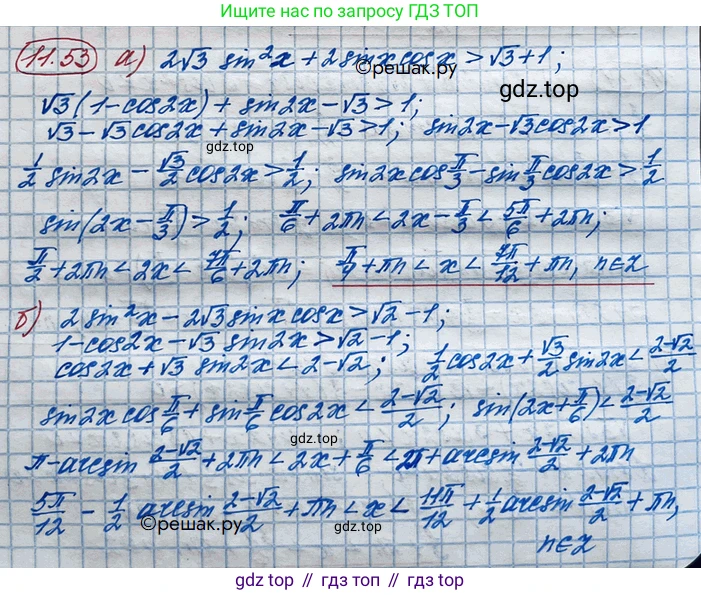 Ищите нас по запросу ГДЗ ТОП
11.53 а) 2√3 sin²x + 2 sinx cosx > √3 + 1;
©решак.ру
gdz.top
√3(1 - cos2x) + sin2x - √3 > 1;
√3 - √3 cos2x + sin2x - √3 > 1; sin2x - √3 cos2x > 1
gdz.top
1/2 sin2x - √3/2 cos2x > 1/2; sin2x cos π/3 - sin π/3 cos2x > 1/2
sin(2x - π/3) > 1/2; π/6 + 2πn < 2x - π/3 < 5π/6 + 2πn;
π/2 + 2πn < 2x < 7π/6 + 2πn; π/4 + πn < x < 7π/12 + πn, n∈Z
б) 2 sin²x - 2√3 sinx cosx > √2 - 1;
1 - cos2x - √3 sin2x > √2 - 1;
cos2x + √3 sin2x < 2 - √2; 1/2 cos2x + √3/2 sin2x < (2-√2)/2
sin2x cos π/6 + sin π/6 cos2x < (2-√2)/2; sin(2x + π/6) < (2-√2)/2
gdz.top
π - arcsin (2-√2)/2 + 2πn < 2x + π/6 < 2π + arcsin (2-√2)/2 + 2πn
5π/12 - 1/2 arcsin (2-√2)/2 + πn < x < 11π/12 + 1/2 arcsin (2-√2)/2 + πn,
©решак.ру
gdz.top
n∈Z
gdz top // гдз топ // gdz.top // гдз.топ